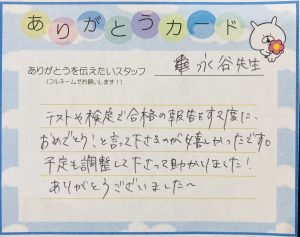 ありがとうカード
ありがとうを伝えたいスタッフ
(フルネームでお願いします!)
永谷先生
テストや検定で合格の報告をする際に、
おめでとう!と言って下さるのが嬉しかったです。
予定も調整して下さって助かりました!
ありがとうございました〜